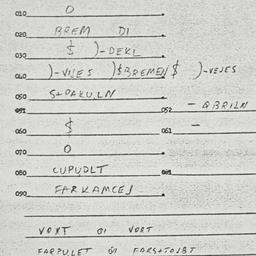 010 O
020 BREM DI
030 $ )-DEKL
040 )-VIJES )$BREMEN$ )-VEJES
050 S+PAKU,LN
051 052 - QBRILN
060 $ 061 -
070 O
080 CUPUDLT 081
090 FARKAMCEJ
VOXT 01 VORT
FARPULET 01 FORS+TOJBT